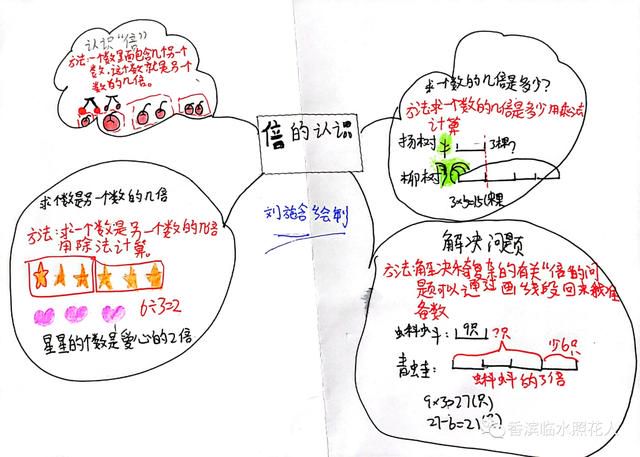 认识“倍”
方法:一个数里面包含几个另一个
数,这个数就是另一个
数的几倍。
倍的认识
刘
绘制
求一个数的几倍是多少?
方法:求一个数的几倍是多少用乘法
计算
杨树
3棵?
柳树
求个数是另一个数的几倍
方法:求一个数是另一个数的几倍
用除法计算。
6÷3=2
星星的个数是爱心的2倍
解决问题
方法:解决
的有关“倍”的问
题可以通过画线段
各数
蝌蚪:
9只
?只
少6只
青蛙:
蝌蚪的3倍
9×3=27(只)
27-6=21(只)
香滨临水照花人